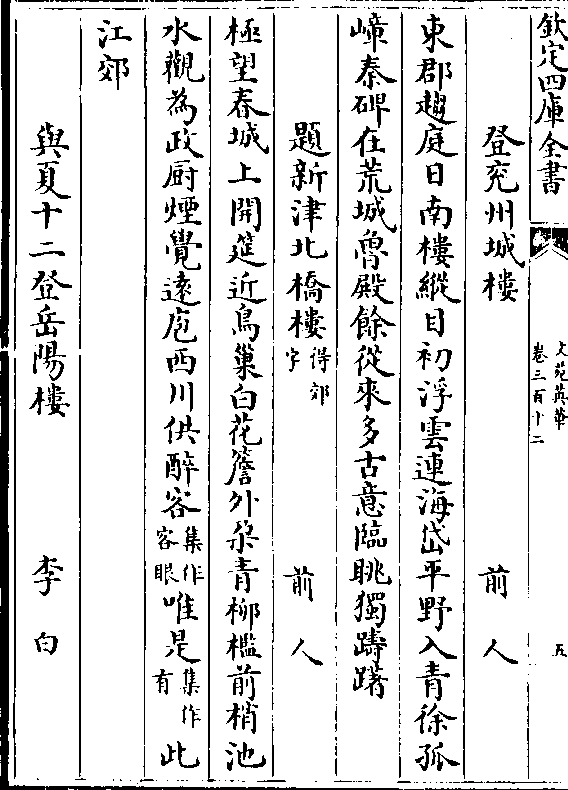 欽定四庫全書
文苑英華
卷三百十二
五
登兖州城樓 前人
東郡趨庭日南樓縱目初浮雲連海岱平野入青徐孤
嶂秦碑在荒城魯殿餘從來多古意臨眺獨躊躇
題新津北橋樓得郊字 前人
極望春城上開筵近鳥巢白花簷外朶青柳檻前梢池
水觀為政厨煙覺遠庖西川供醉客集作客眼唯是集作有此
江郊
與夏十二登岳陽樓 李白